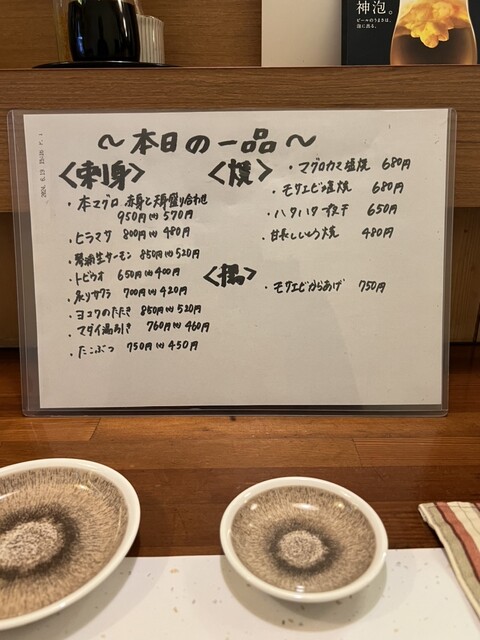 神泡。
ビールのうまさは、
泡に出る。
2024. 6.13 15:01 P. 1
～本日の一品～
〈刺身〉
・本マグロ 赤身と天身盛り合わせ
950円 (小) 570円
・ヒラマサ 800円 (小) 480円
・琴浦生サーモン 850円 (小) 520円
・トビウオ 650円 (小) 400円
・炙りサワラ 700円 (小) 420円
・ヨコワのたたき 850円 (小) 520円
・マダイ湯引き 760円 (小) 460円
・たこぶつ 750円 (小) 450円
〈焼〉
・マグロカマ塩焼 680円
・モサエビ塩焼 680円
・ハタハタ一夜干 650円
・甘長ししとう焼 480円
〈揚〉
・モサエビからあげ 750円